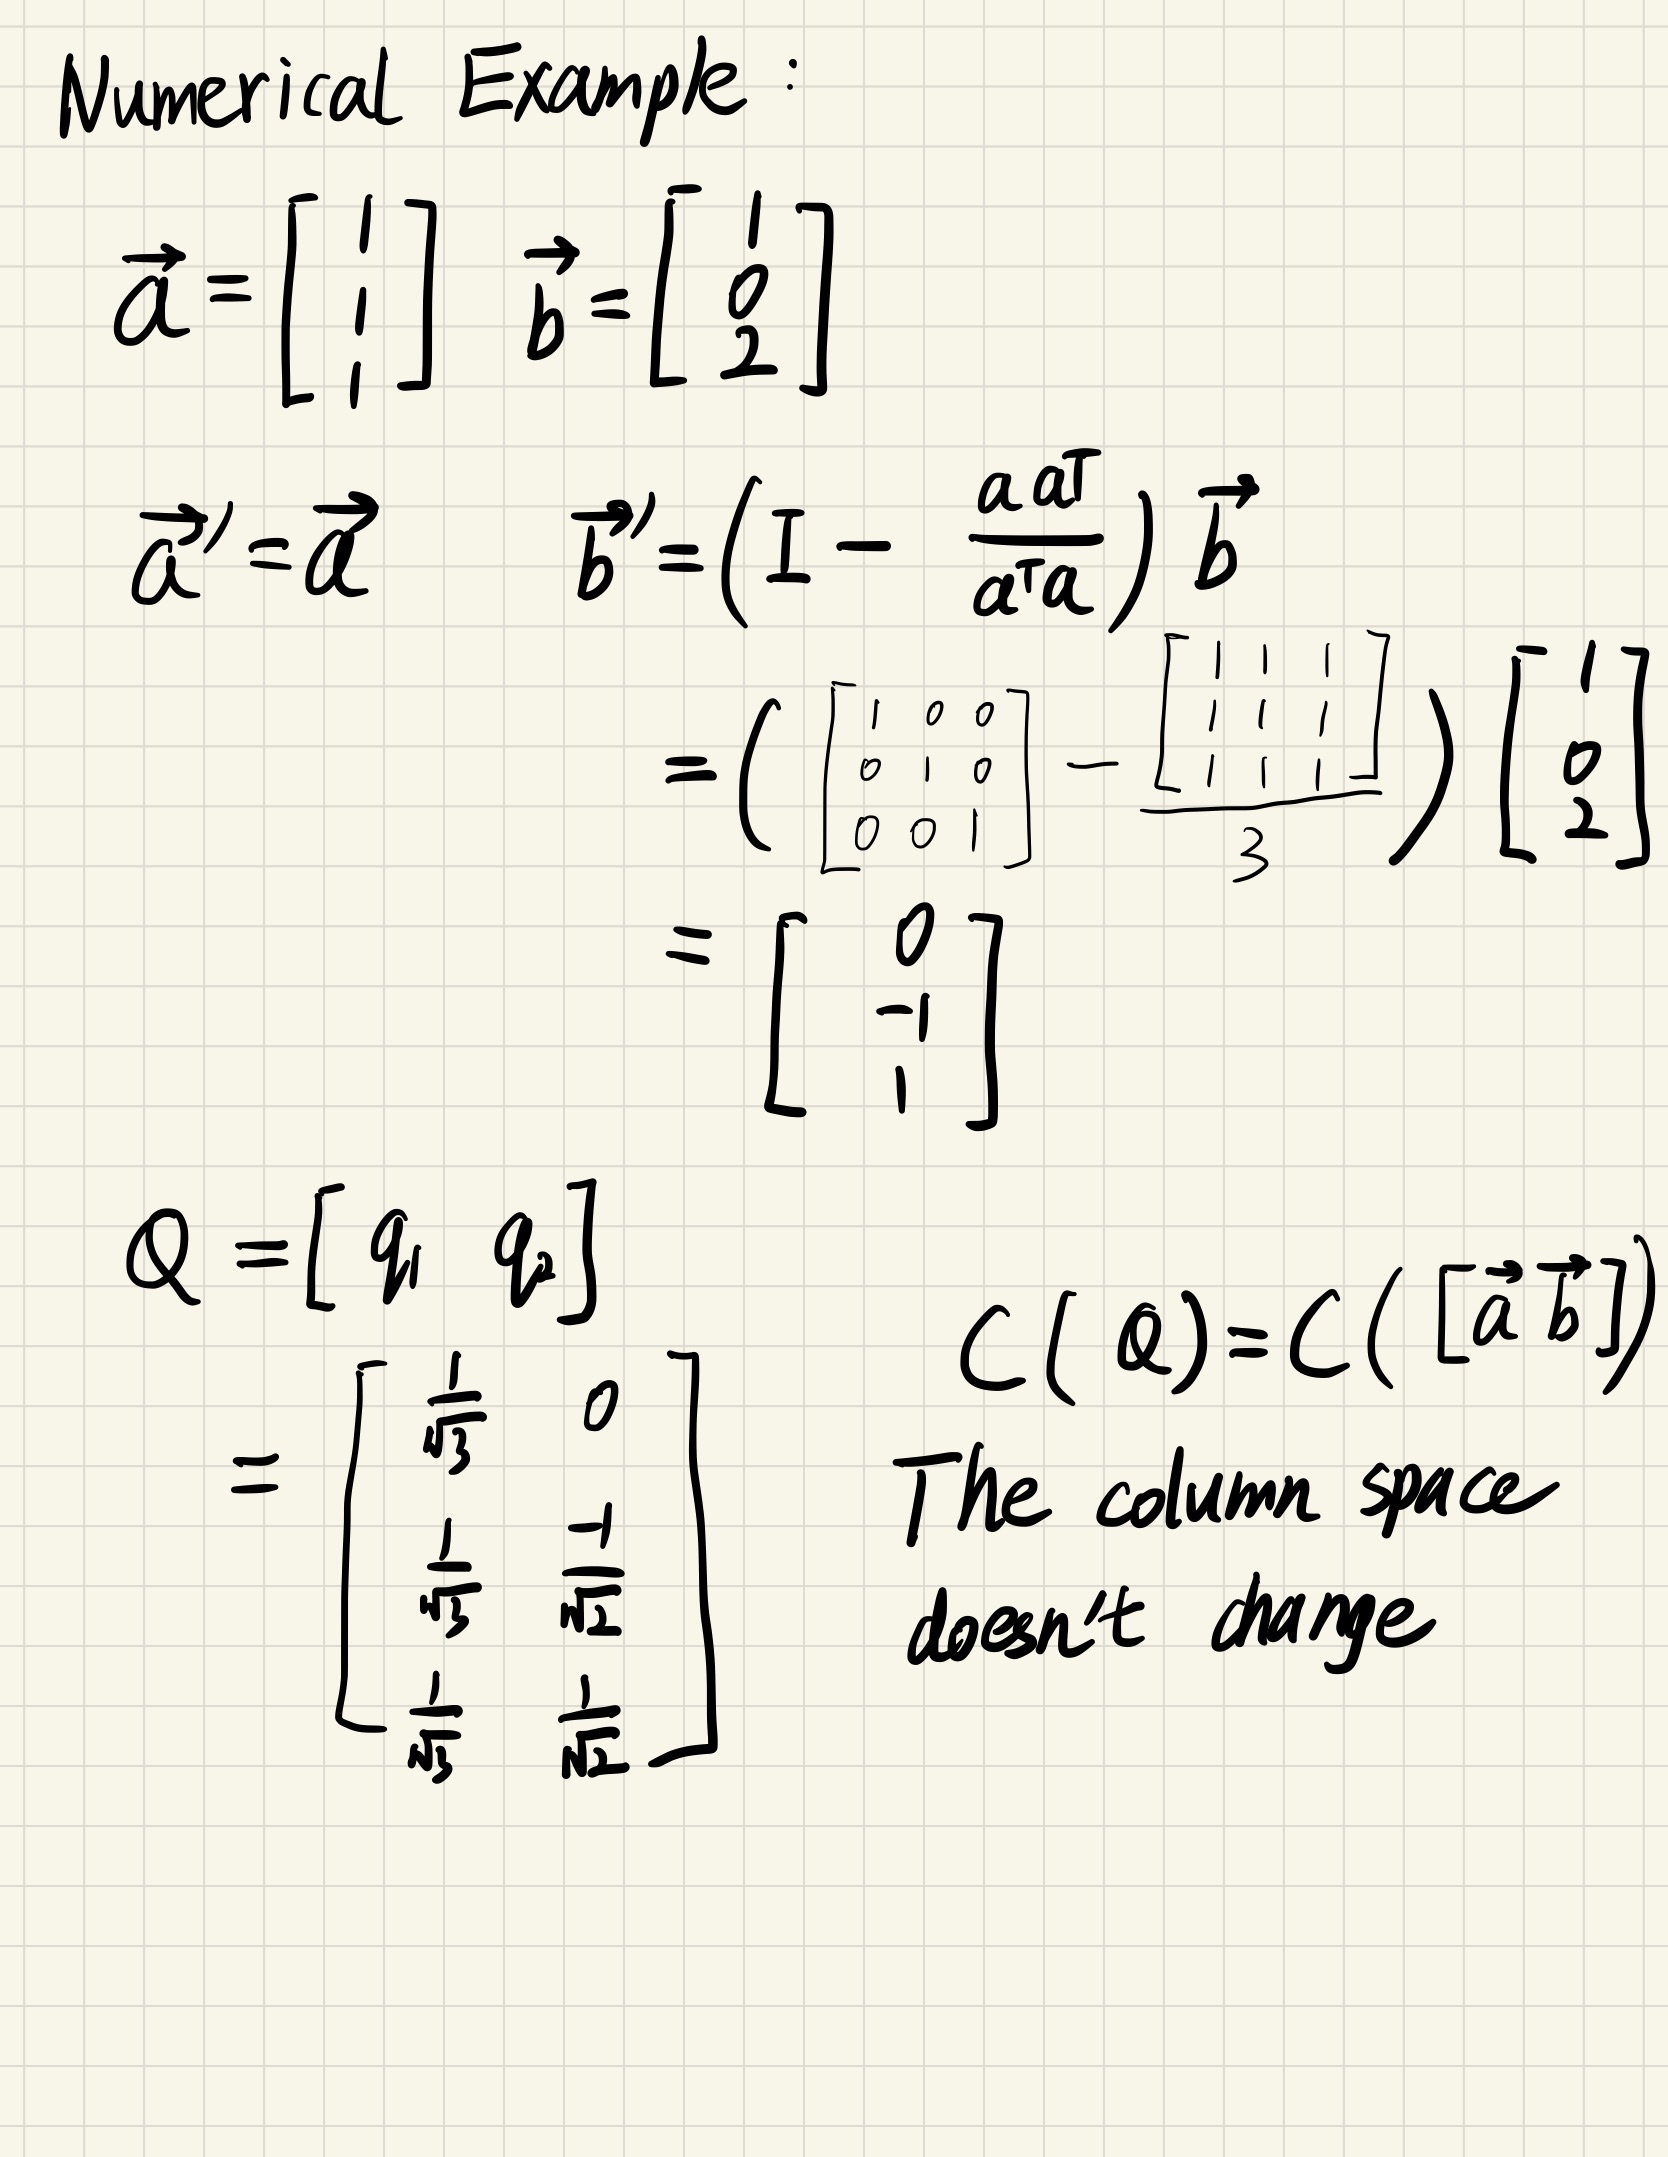 Numerical Example :
$\vec{a} = \begin{bmatrix} 1 \\ 1 \\ 1 \end{bmatrix} \quad \vec{b} = \begin{bmatrix} 1 \\ 0 \\ 2 \end{bmatrix}$
$\vec{a}' = \vec{a} \quad \vec{b}' = \left( I - \frac{a a^T}{a^T a} \right) \vec{b}$
$= \left( \begin{bmatrix} 1 & 0 & 0 \\ 0 & 1 & 0 \\ 0 & 0 & 1 \end{bmatrix} - \frac{\begin{bmatrix} 1 & 1 & 1 \\ 1 & 1 & 1 \\ 1 & 1 & 1 \end{bmatrix}}{3} \right) \begin{bmatrix} 1 \\ 0 \\ 2 \end{bmatrix}$
$= \begin{bmatrix} 0 \\ -1 \\ 1 \end{bmatrix}$
$Q = [ q_1 \quad q_2 ]$
$= \begin{bmatrix} \frac{1}{\sqrt{3}} & 0 \\ \frac{1}{\sqrt{3}} & \frac{-1}{\sqrt{2}} \\ \frac{1}{\sqrt{3}} & \frac{1}{\sqrt{2}} \end{bmatrix}$
$C(Q) = C([\vec{a} \ \vec{b}])$
The column space
doesn't change